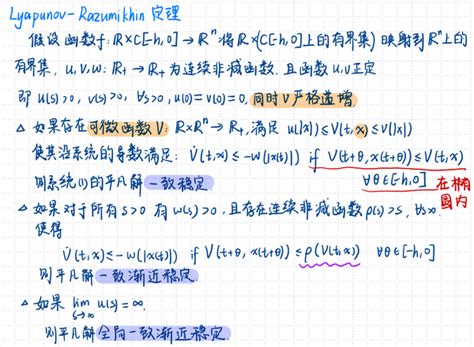 Lyapunov-Razumikhin 定理
假设函数 f: ℝ×C[-h,0] → ℝⁿ 将 ℝ×(C[-h,0]上的有界集) 映射到 ℝⁿ 上的
有界集, u,v,w: ℝ₊ → ℝ₊ 为连续非减函数, 且函数 u,v 正定
即 u(s)>0, v(s)>0, ∀s>0, u(0)=v(0)=0, 同时 v 严格递增
△ 如果存在可微函数 V: ℝ×ℝⁿ → ℝ₊, 满足 u(|x|) ≤ V(t,x) ≤ v(|x|)
使其沿系统的导数满足: V̇(t,x) ≤ -w(|x(t)|) if V(t+θ, x(t+θ)) ≤ V(t,x)
则系统(1)的平凡解一致稳定 ∀θ∈[-h,0] 在椭
圆内
△ 如果对于所有 s>0 有 w(s)>0, 且存在连续非减函数 ρ(s)>s, ∀s>0.
使得
V̇(t,x) ≤ -w(|x(t)|) if V(t+θ, x(t+θ)) ≤ ρ(V(t,x)) ∀θ∈[-h,0]
则平凡解一致渐近稳定
△ 如果 lim u(s)=∞,
s→∞
则平凡解全局一致渐近稳定.